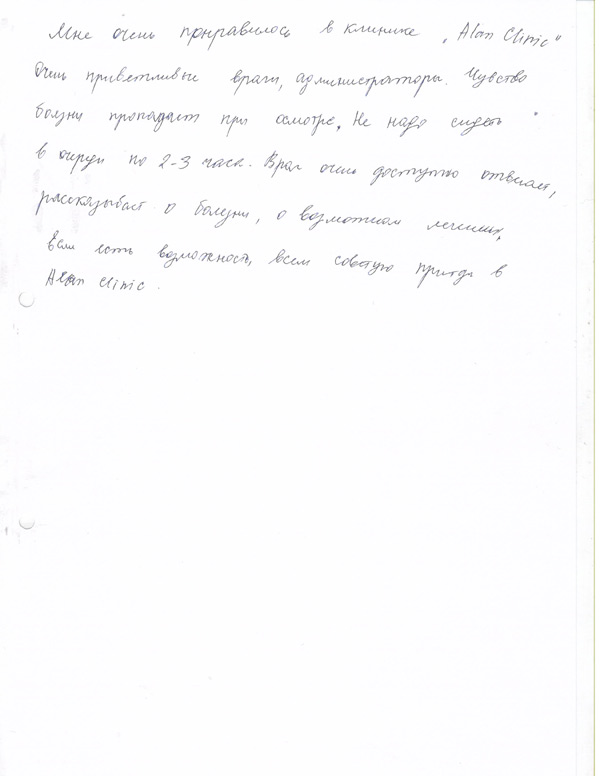 Мне очень понравилось в клинике „Alan Clinic"
Очень приветливые врачи, администраторы. Чувство
болзни пропадает при осмотре. Не надо сидеть
в очереди по 2-3 часа. Врач очень доступно отвечает,
рассказывает о болезни, о возможном лечении,
если есть возможность, всем советую прийти в
Alan Clinic.